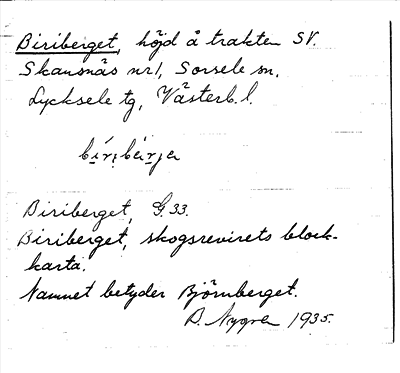 Biriberget, höjd å trakten SV.
Skansnäs nr 1, Sorsele sn.
Lycksele tg, Västerb. l.
bíribèrjɐ
Biriberget, G. 33.
Biriberget, skogsrevirets block-
karta.
Namnet betyder Björnberget.
D. Nygren 1935.